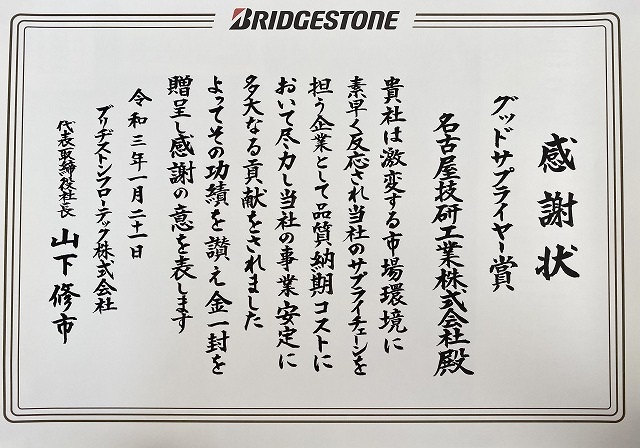 BRIDGESTONE
感謝状
グッドサプライヤー賞
名古屋技研工業株式会社殿
貴社は激変する市場環境に
素早く反応され当社のサプライチェーンを
担う企業として品質納期コストに
おいて尽力し当社の事業安定に
多大なる貢献をされました
よってその功績を讃え金一封を
贈呈し感謝の意を表します
令和三年一月二十一日
ブリヂストンフローテック株式会社
代表取締役社長 山下修市